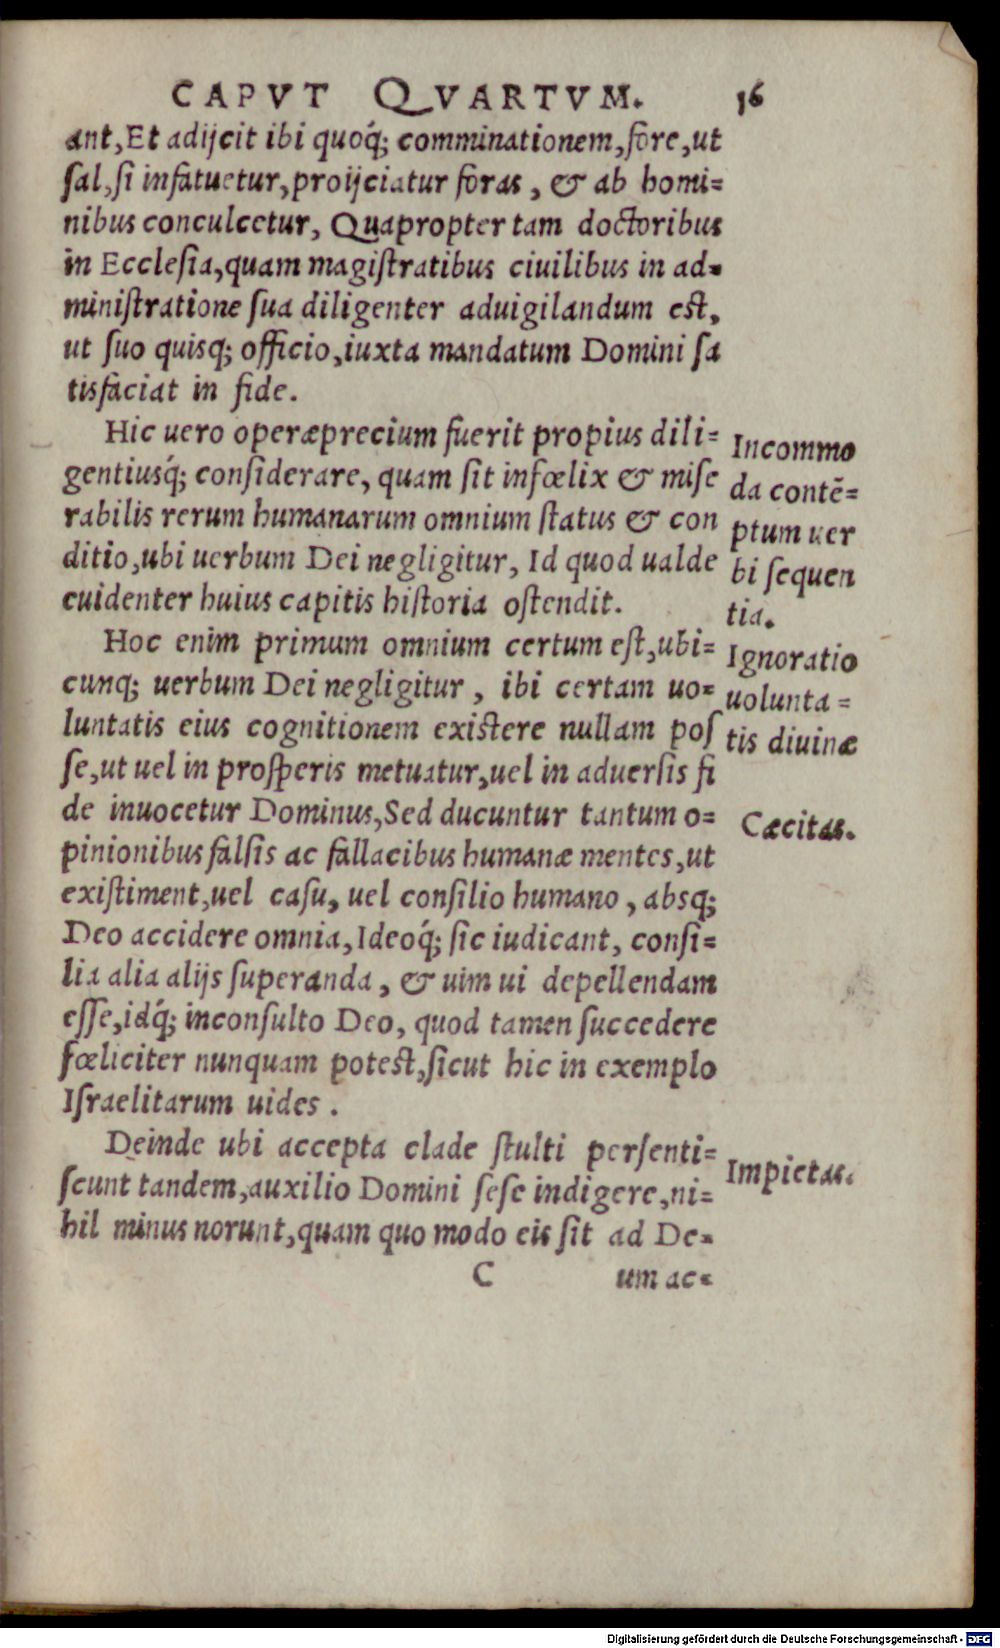 CAPVT QVARTVM. 16
ant, Et adijcit ibi quoq́; comminationem, fore, ut
ſal, ſi infatuetur, proijciatur foras, & ab homi=
nibus conculcetur, Quapropter tam doctoribus
in Eccleſia, quam magiſtratibus ciuilibus in ad=
miniſtratione ſua diligenter aduigilandum eſt,
ut ſuo quisq; officio, iuxta mandatum Domini ſa
tisfaciat in fide.
Hic uero operæprecium fuerit propius dili=
gentiusq́; conſiderare, quam ſit infœlix & miſe
rabilis rerum humanarum omnium ſtatus & con
ditio, ubi uerbum Dei negligitur, Id quod ualde
euidenter huius capitis hiſtoria oſtendit.
Incommo
da contē=
ptum uer
bi ſequen
tia.
Hoc enim primum omnium certum eſt, ubi=
cunq; uerbum Dei negligitur, ibi certam uo=
luntatis eius cognitionem exiſtere nullam poſ
ſe, ut uel in proſperis metuatur, uel in aduerſis fi
de inuocetur Dominus, Sed ducuntur tantum o=
pinionibus falſis ac fallacibus humanæ mentes, ut
exiſtiment, uel caſu, uel conſilio humano, absq;
Deo accidere omnia, Ideoq́; ſic iudicant, conſi=
lia alia alijs ſuperanda, & uim ui depellendam
eſſe, idq́; inconſulto Deo, quod tamen ſuccedere
fœliciter nunquam poteſt, ſicut hic in exemplo
Iſraelitarum uides.
Ignoratio
uolunta=
tis diuinæ
Cæcitas.
Deinde ubi accepta clade ſtulti perſenti=
ſcunt tandem, auxilio Domini ſeſe indigere, ni=
hil minus norunt, quam quo modo eis ſit ad De=
Impietas.
C um ac=
Digitalisierung gefördert durch die Deutsche Forschungsgemeinschaft - DFG